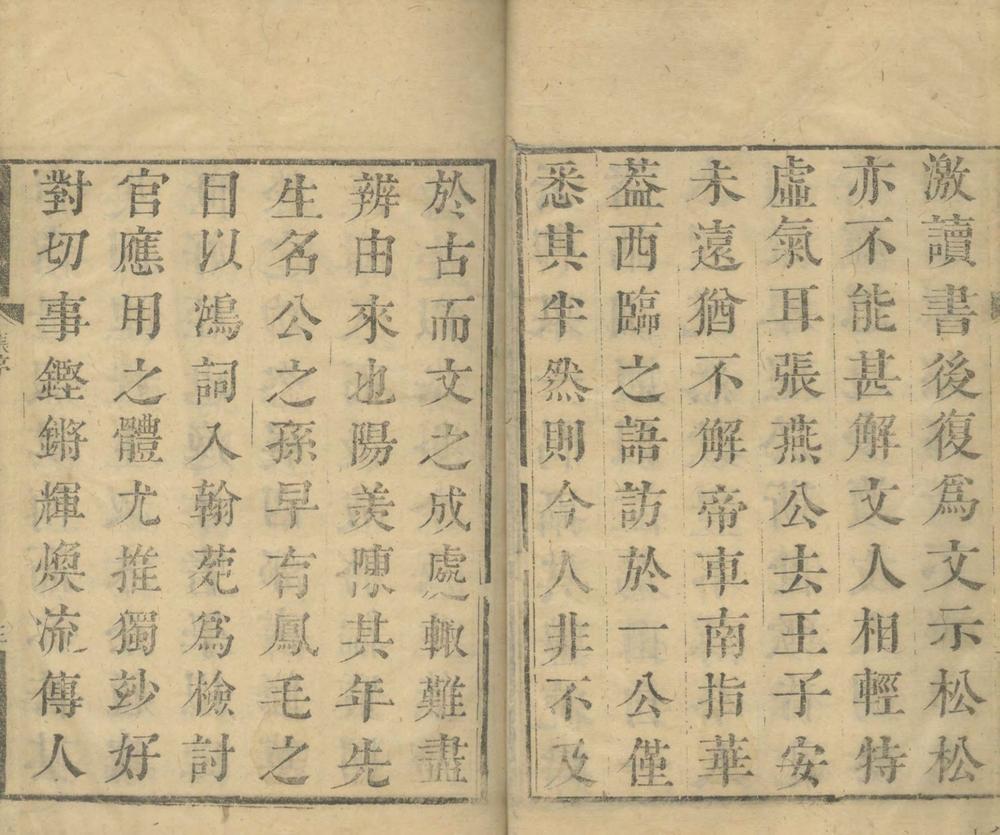 激讀書後復爲文示松松
亦不能甚解文人相輕特
虛氣耳張燕公去王子安
未遠猶不解帝車南指華
葢西臨之語訪於一公僅
悉其半然則今人非不及
於古而文之成處輙難盡
辨由來也陽羨陳其年先
生名公之孫早有鳳毛之
目以鴻詞入翰苑爲檢討
官應用之體尤推獨玅好
對切事鏗鏘輝煥流傳人